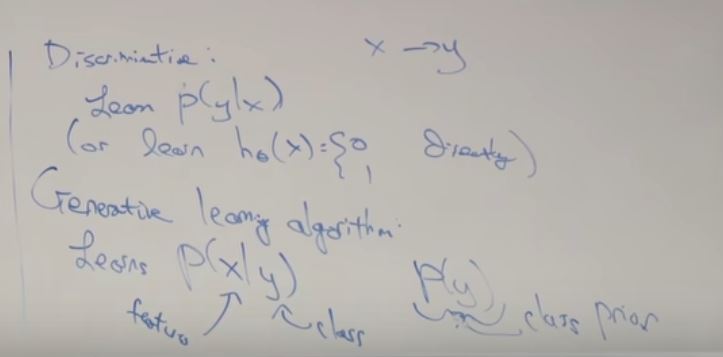 Discriminative: x → y
Learn p(y|x)
(or learn hθ(x) = { 0 directly)
1
Generative learning algorithm:
Learns p(x|y) p(y)
feature class class prior